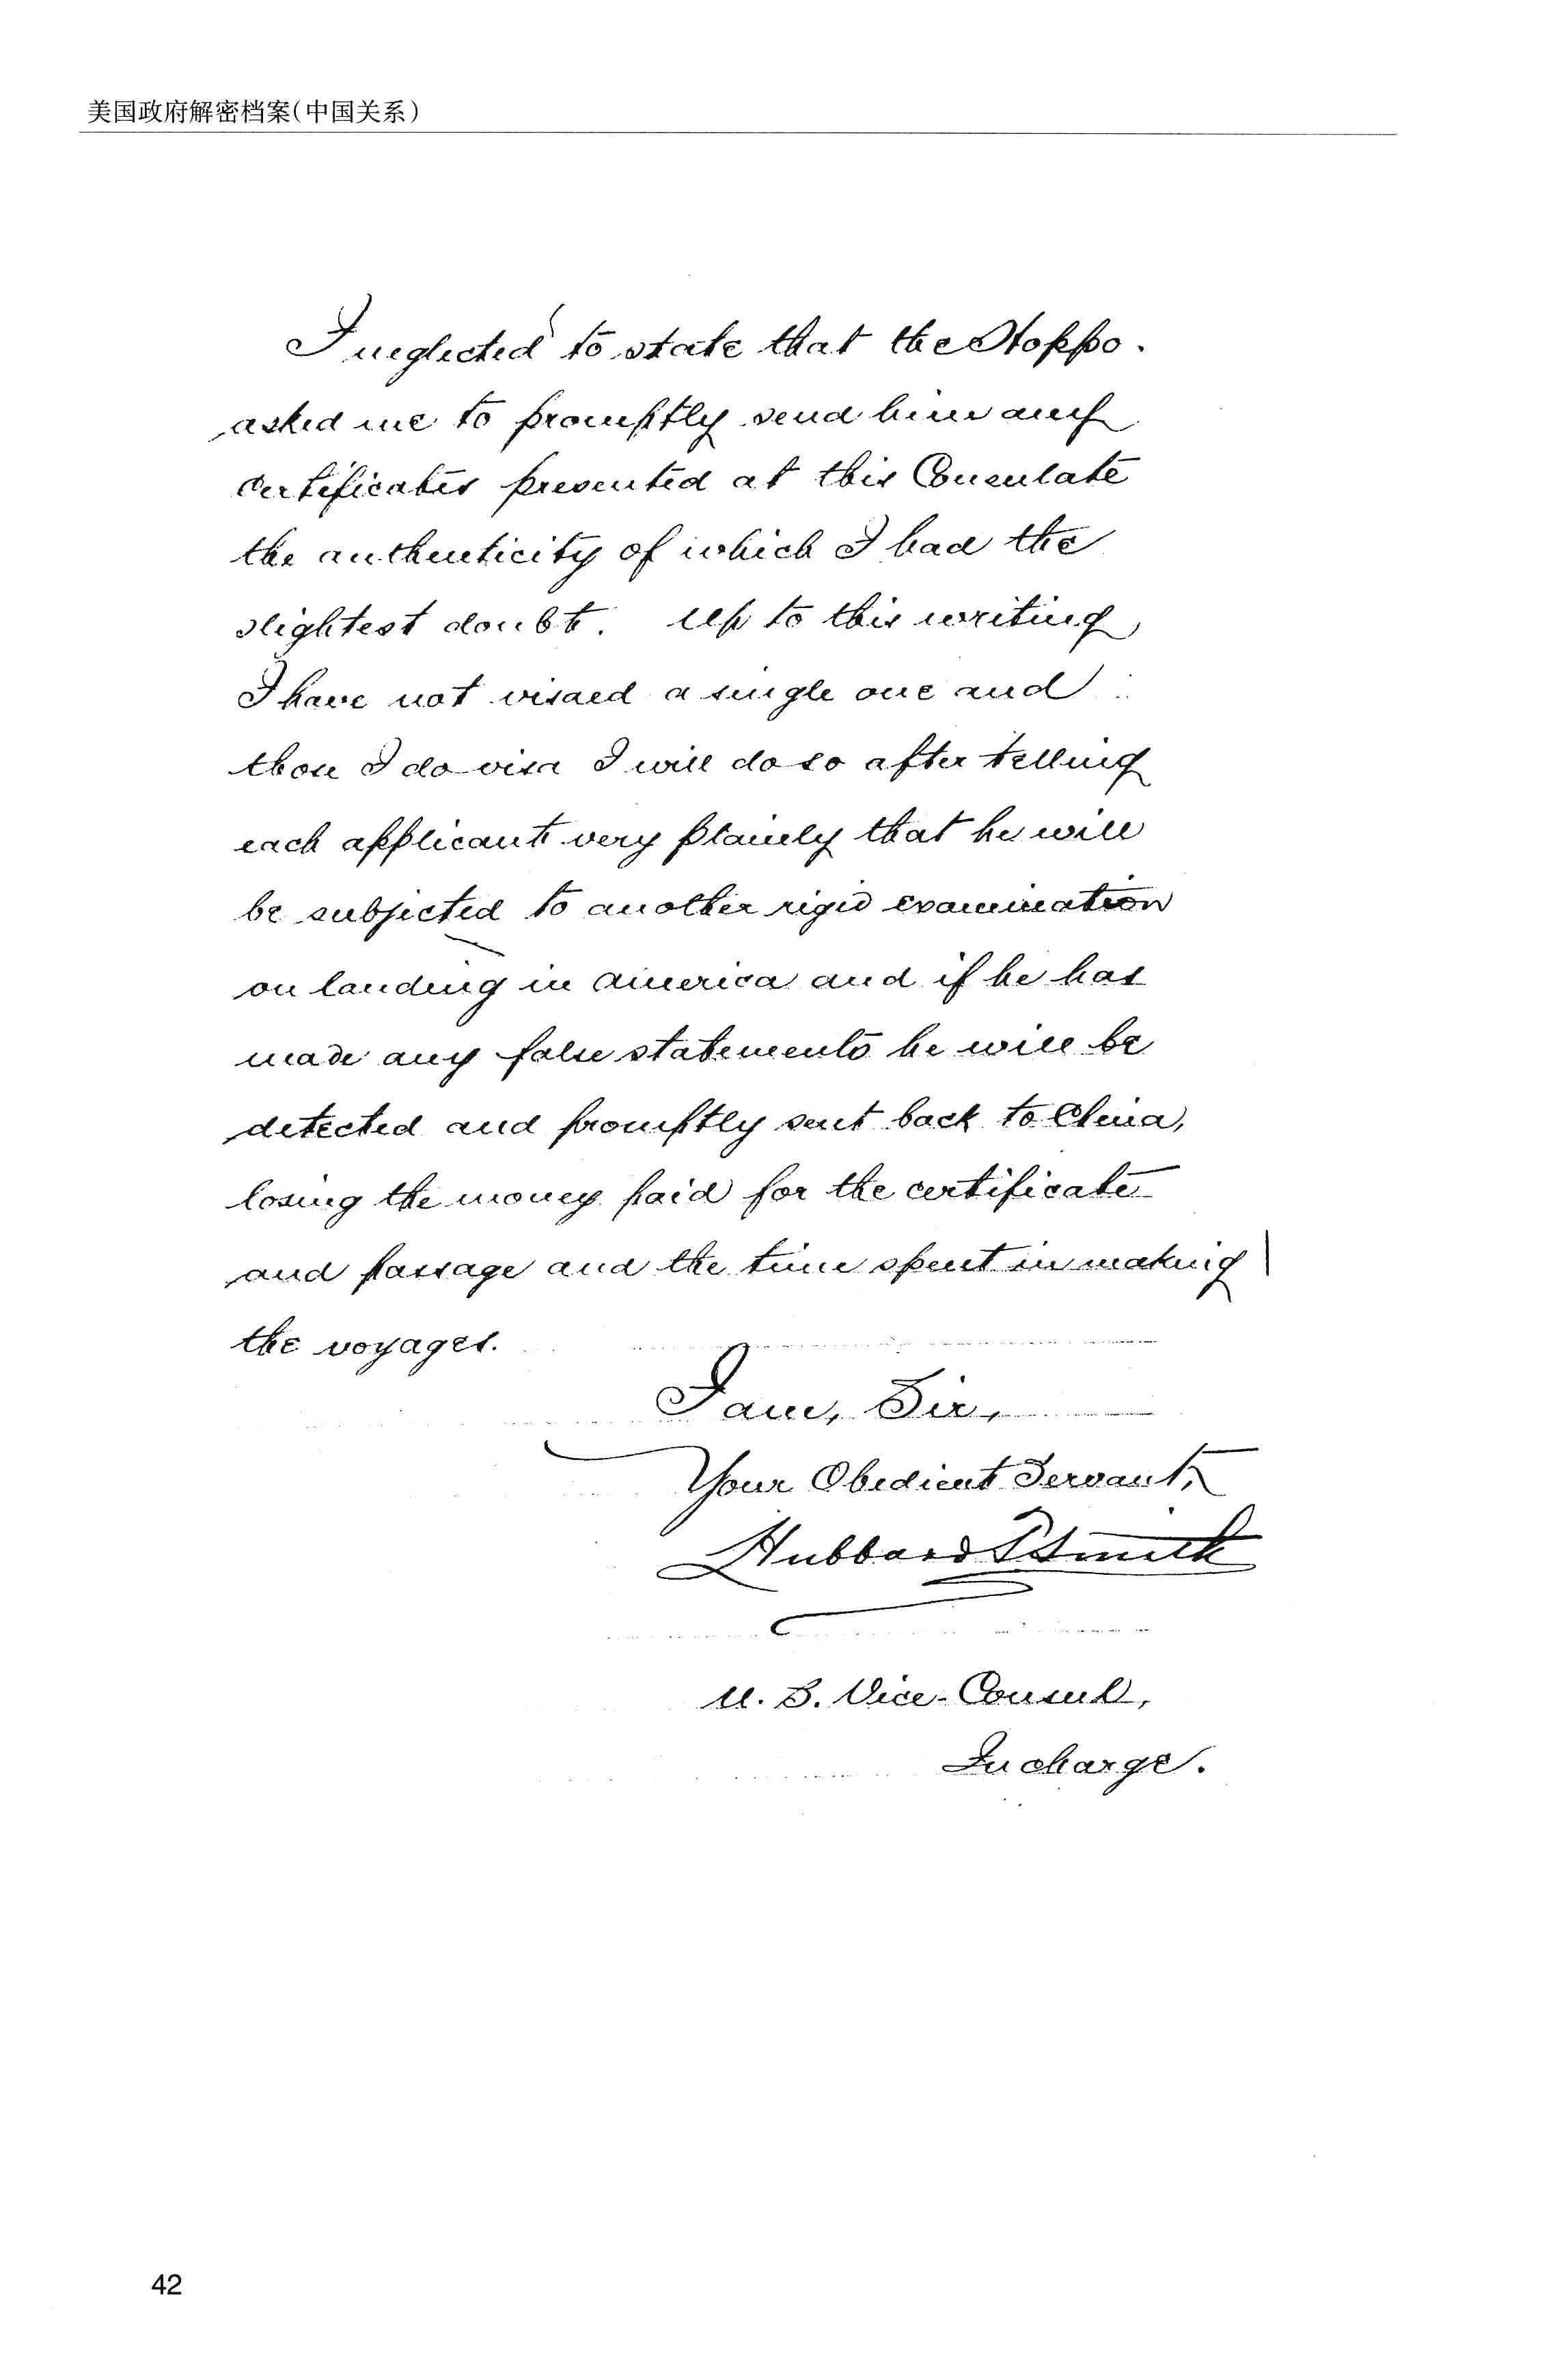 美国政府解密档案(中国关系)
I neglected to state that the Hoppo.
asked me to promptly send him any
certificates presented at this Consulate
the authenticity of which I had the
slightest doubt. Up to this writing,
I have not visaed a single one and
those I do visa I will do so after telling
each applicant very plainly that he will
be subjected to another rigid examination
on landing in America and if he has
made any false statements he will be
detected and promptly sent back to China,
losing the money paid for the certificate
and passage and the time spent in making
the voyages.
I am, Sir,
Your Obedient Servant,
Hubbard T. Smith
U. S. Vice-Consul,
In charge.
42